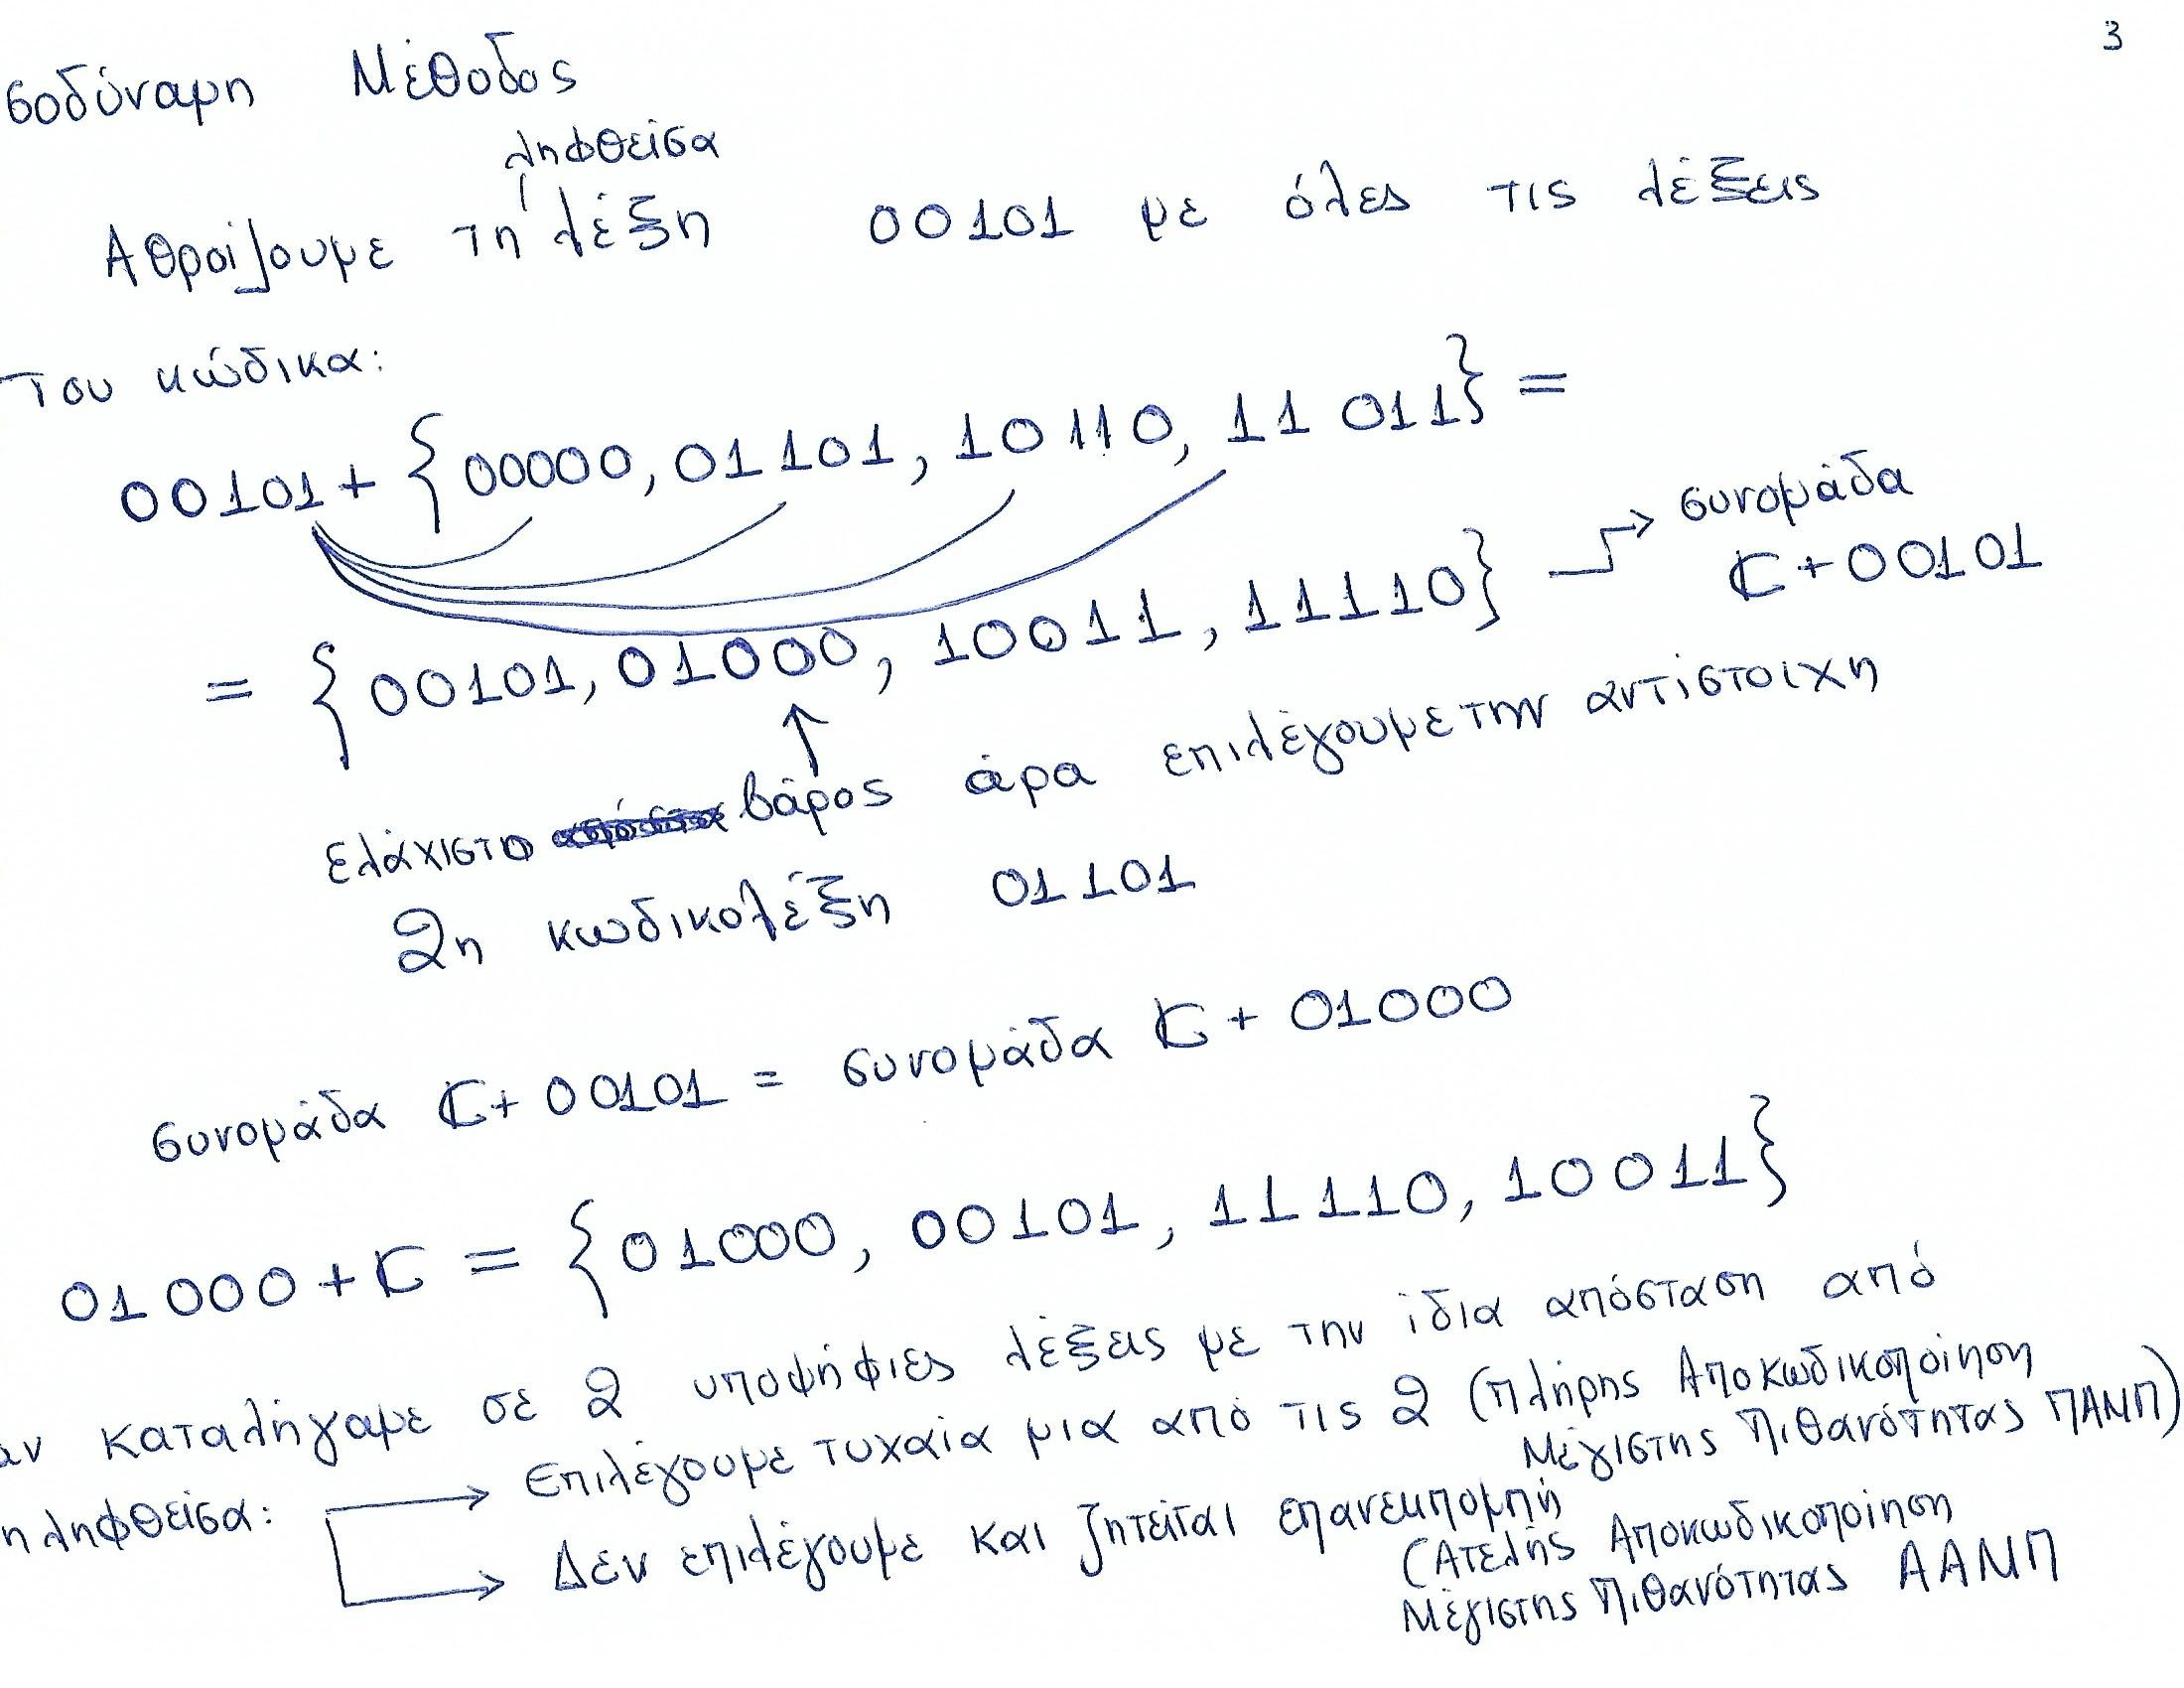 3
σοδύναμη Μέθοδος
ληφθείσα
Αθροίζουμε τη λέξη 00101 με όλες τις λέξεις
του κώδικα:
00101 + {00000, 01101, 10110, 11011} =
= {00101, 01000, 10011, 11110} → συνομάδα
C + 00101
↑
ελάχιστο βάρος άρα επιλέγουμε την αντίστοιχη
2η κωδικολέξη 01101
συνομάδα C + 00101 = συνομάδα C + 01000
01000 + C = {01000, 00101, 11110, 10011}
αν καταλήγαμε σε 2 υποψήφιες λέξεις με την ίδια απόσταση από
η ληφθείσα: → Επιλέγουμε τυχαία μια από τις 2 (Πλήρης Αποκωδικοποίηση
Μέγιστης Πιθανότητας ΠΑΜΠ)
→ Δεν επιλέγουμε και ζητείται επανεκπομπή
(Ατελής Αποκωδικοποίηση
Μέγιστης Πιθανότητας ΑΑΜΠ